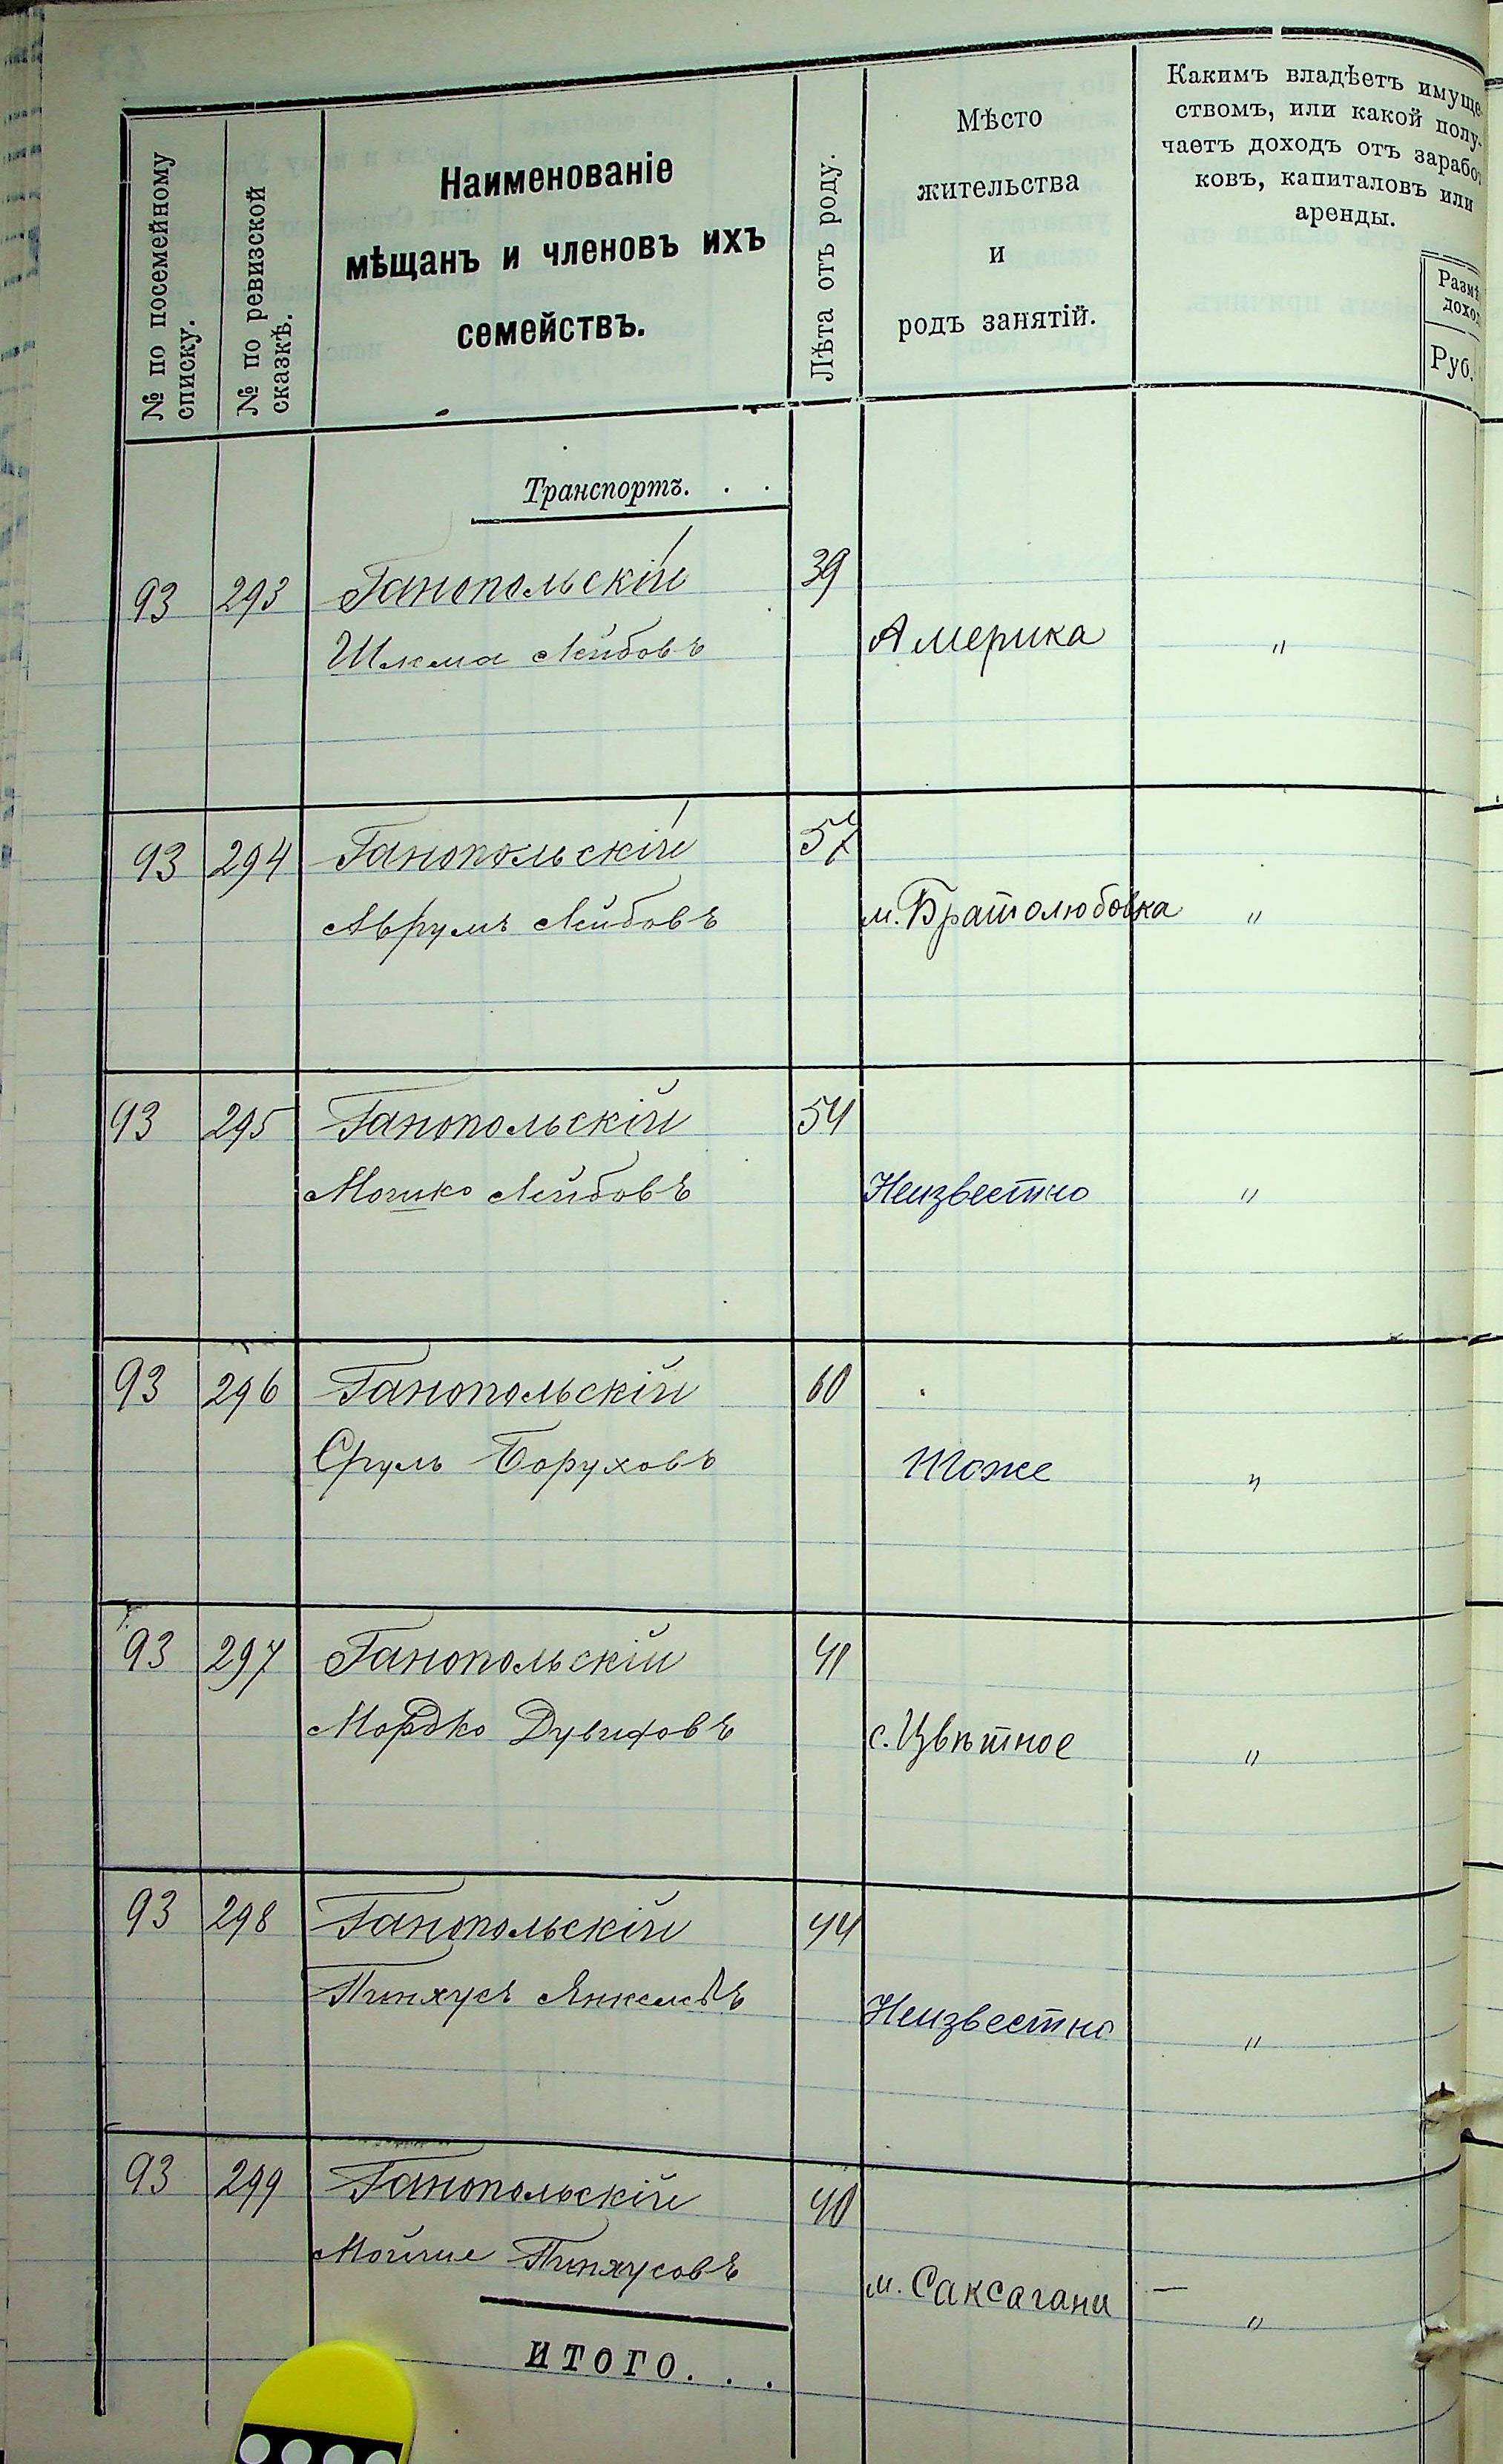 № по посемейному
списку.
№ по ревизской
сказкѣ.
Наименованіе
мѣщанъ и членовъ ихъ
семействъ.
Лѣта отъ роду.
Мѣсто
жительства
и
родъ занятій.
Какимъ владѣетъ имуще-
ствомъ, или какой полу-
чаетъ доходъ отъ заработ
ковъ, капиталовъ или
аренды.
Размѣ
доход
Руб.
Транспортъ. . .
93 293 Ганопольскій 39
Шлема Лейбовъ Америка "
93 294 Ганопольскій
Аврумъ Лейбовъ м. Братолюбовка "
93 295 Ганопольскій 54
Мошко Лейбовъ Неизвестно "
93 296 Ганопольскій 60
Сруль Боруховъ тоже "
93 297 Ганопольскій 41
Мордко Дувидовъ с. Цвѣтное "
93 298 Ганопольскій 44
Пинхусъ Янкелевъ Неизвестно "
93 299 Ганопольскій 40
Мойше Пинхусовъ м. Саксагани — "
ИТОГО. . .